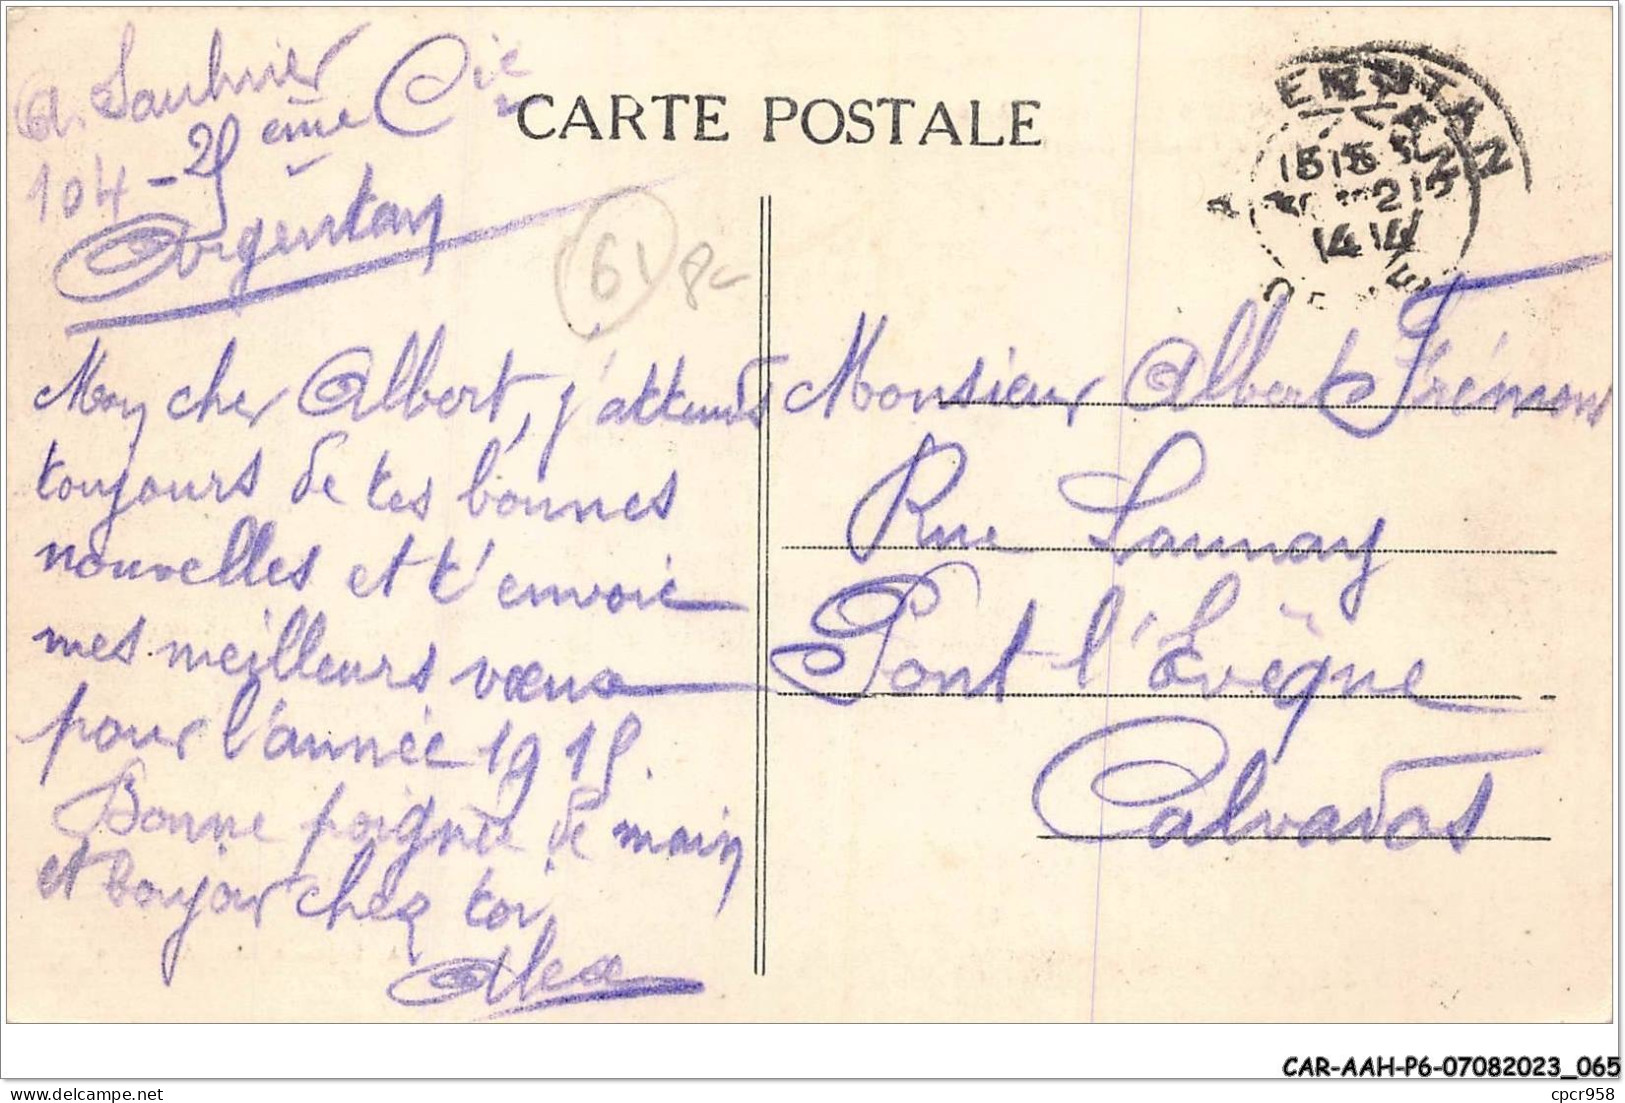 A. Saulnier
104 - 25ème Cie
Argentan
CARTE POSTALE
ARGENTAN
14
ORNE
61
8
Mon cher Albert, j'attends
toujours de tes bonnes
nouvelles et t'envoie
mes meilleurs vœux
pour l'année 1915.
Bonne poignée de main
et bonjour chez toi
Alex
Monsieur Albert Frémont
Rue Launay
Pont l'Evêque
Calvados
CAR-AAH-P6-07082023_065
cpcr958